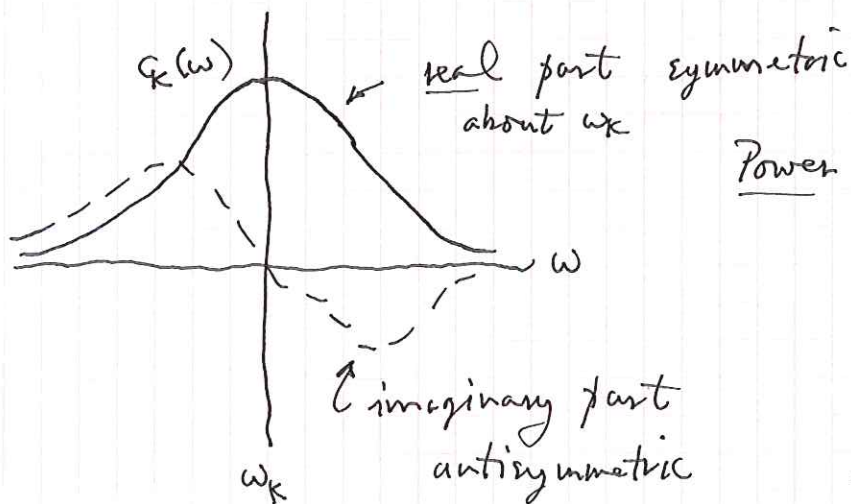 C_k(ω)
real part symmetric
about ω_k
Power
ω
imaginary part
antisymmetric
ω_k